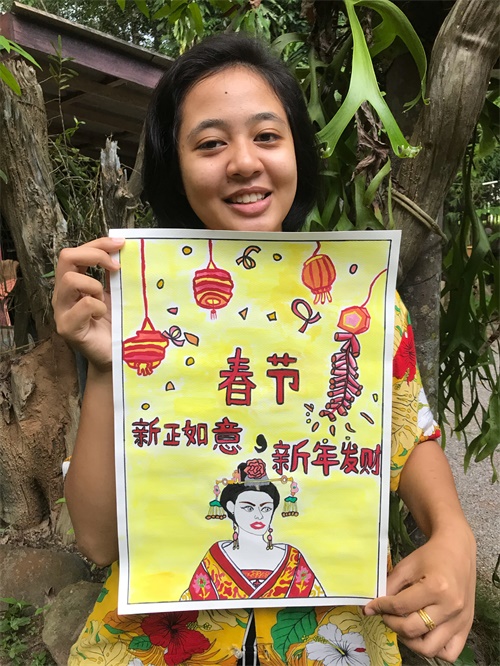 春节
新正如意，新年发财